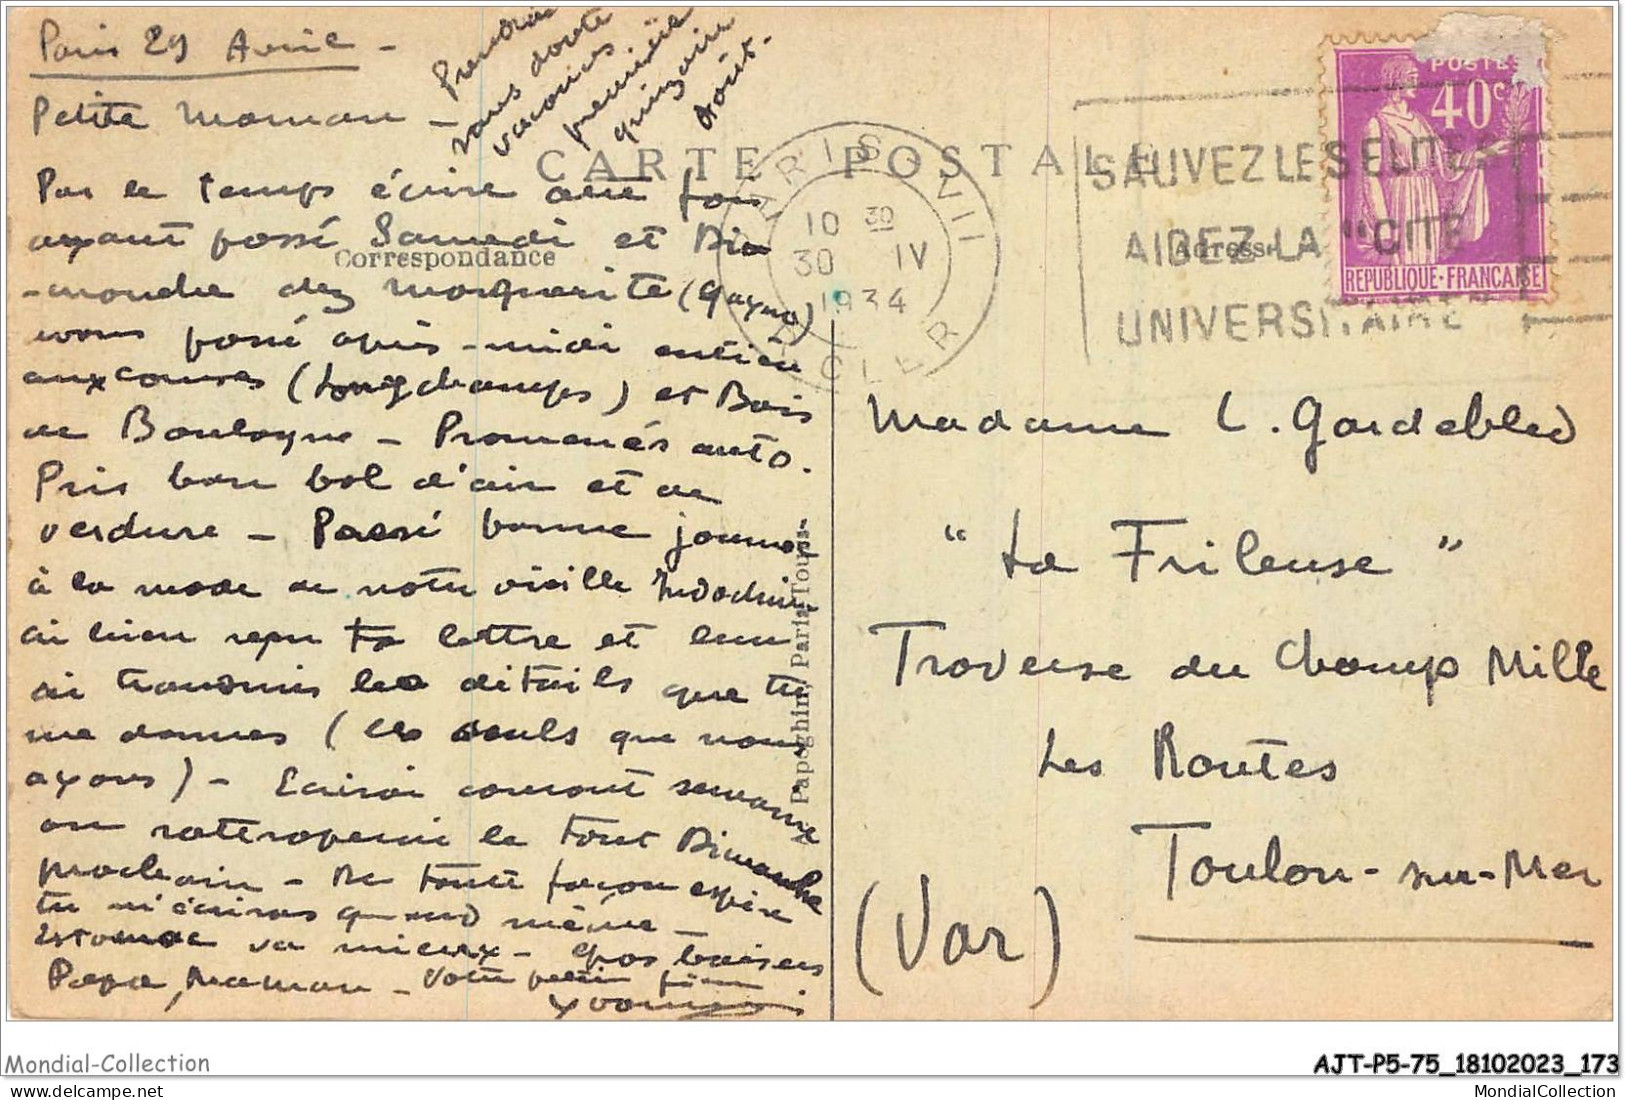 Paris 29 Avril -
Prendrai
sans doute
vacances
première
quinzaine
Août.
Petite Maman -
CARTE POSTALE
Pas le temps écrire cette fois
ayant passé Samedi et Di
-manche chez Marguerite (Gagno)
Correspondance
Adresse
avons passé après-midi entier
aux courses (Longchamps) et Bois
de Boulogne - Promenés auto.
Pris bon bol d'air et de
verdure - Passé bonne journée
à la mode de notre vieille Indochine
ai bien reçu ta lettre et leur
ai transmis les détails que tu
me donnes (les seuls que nous
ayons) - Ecrirai courant semaine
ou rattraperai le tout Dimanche
prochain - De toute façon espère
tu m'écriras quand même -
Estomac va mieux - Gros baisers
Papa, Maman - Votre petit
Papeghin, Paris-Tours.
PARIS VII
10 30
30 IV
1934
R. CLER
SAUVEZ LES ELITES
AIDEZ LA "CITE
UNIVERSITAIRE"
POSTES
40c
REPUBLIQUE·FRANCAISE
Madame L. Gardebled
"La Frileuse"
Traverse du Champ Mille
Les Routes
Toulon-sur-Mer
(Var)
Mondial-Collection
AJT-P5-75_18102023_173
www.delcampe.net
MondialCollection